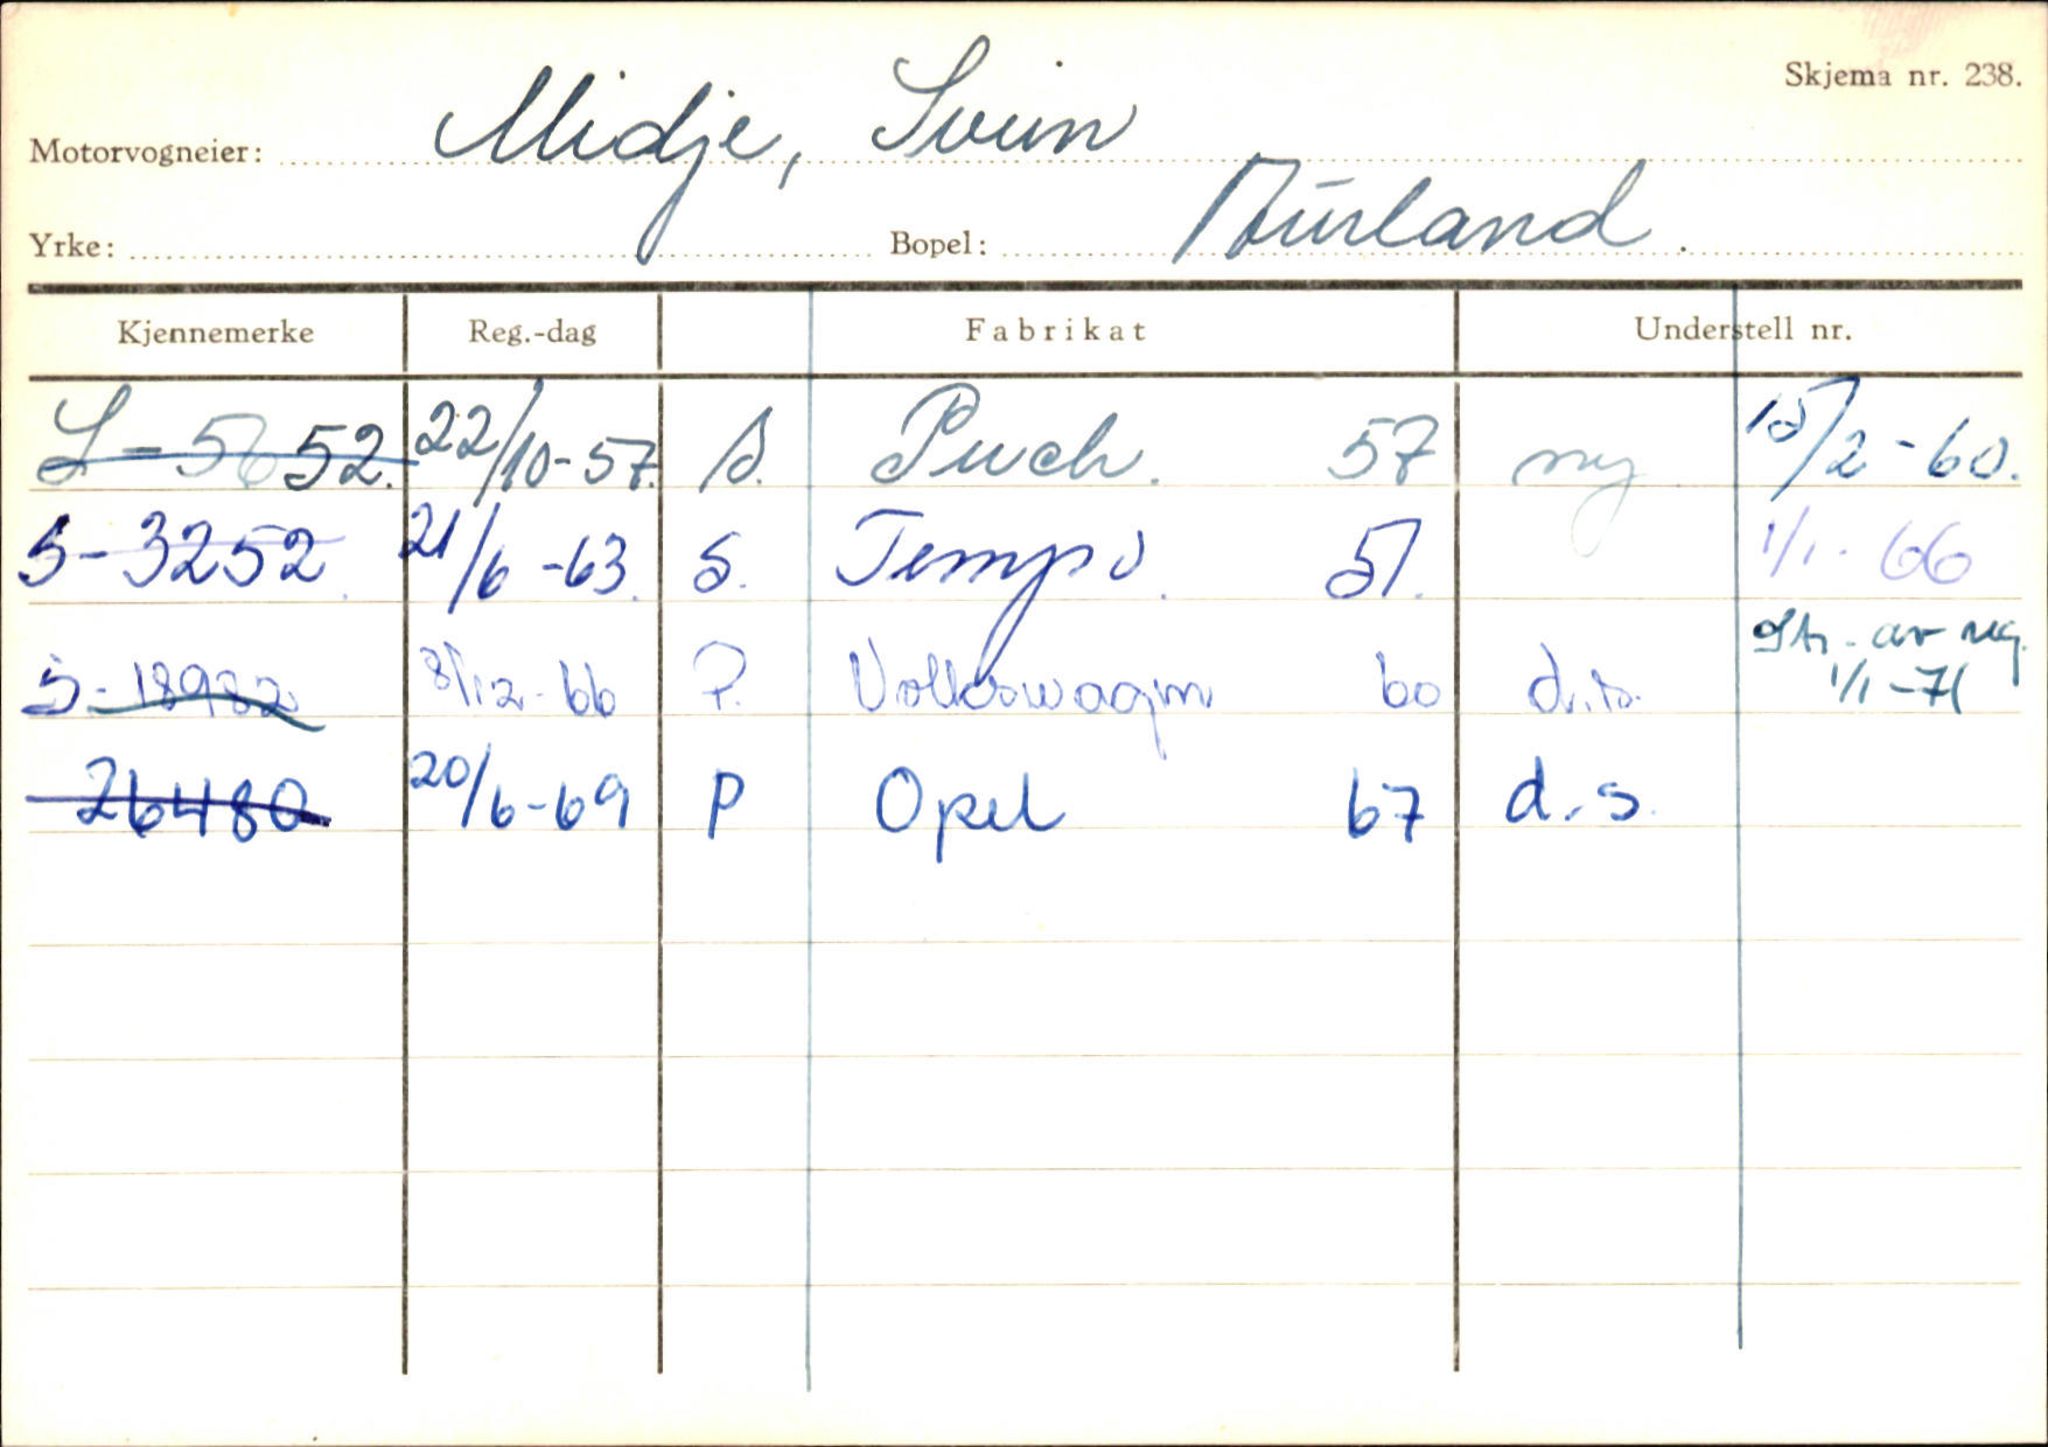 Skjema nr. 238.
Motorvogneier: Midje, Svein
Yrke: Bopel: Aurland.
Kjennemerke Reg.-dag Fabrikat Understell nr.
S-5652. 22/10-57. s. Puch. 57 ny 15/2-60.
S-3252. 21/6-63. s. Tempo. 51. 1/1-66
S-18982 8/12-66 P. Volkswagen 60 d.s. Str. av reg. 1/1-71
26480 20/6-69 P Opel 67 d.s.